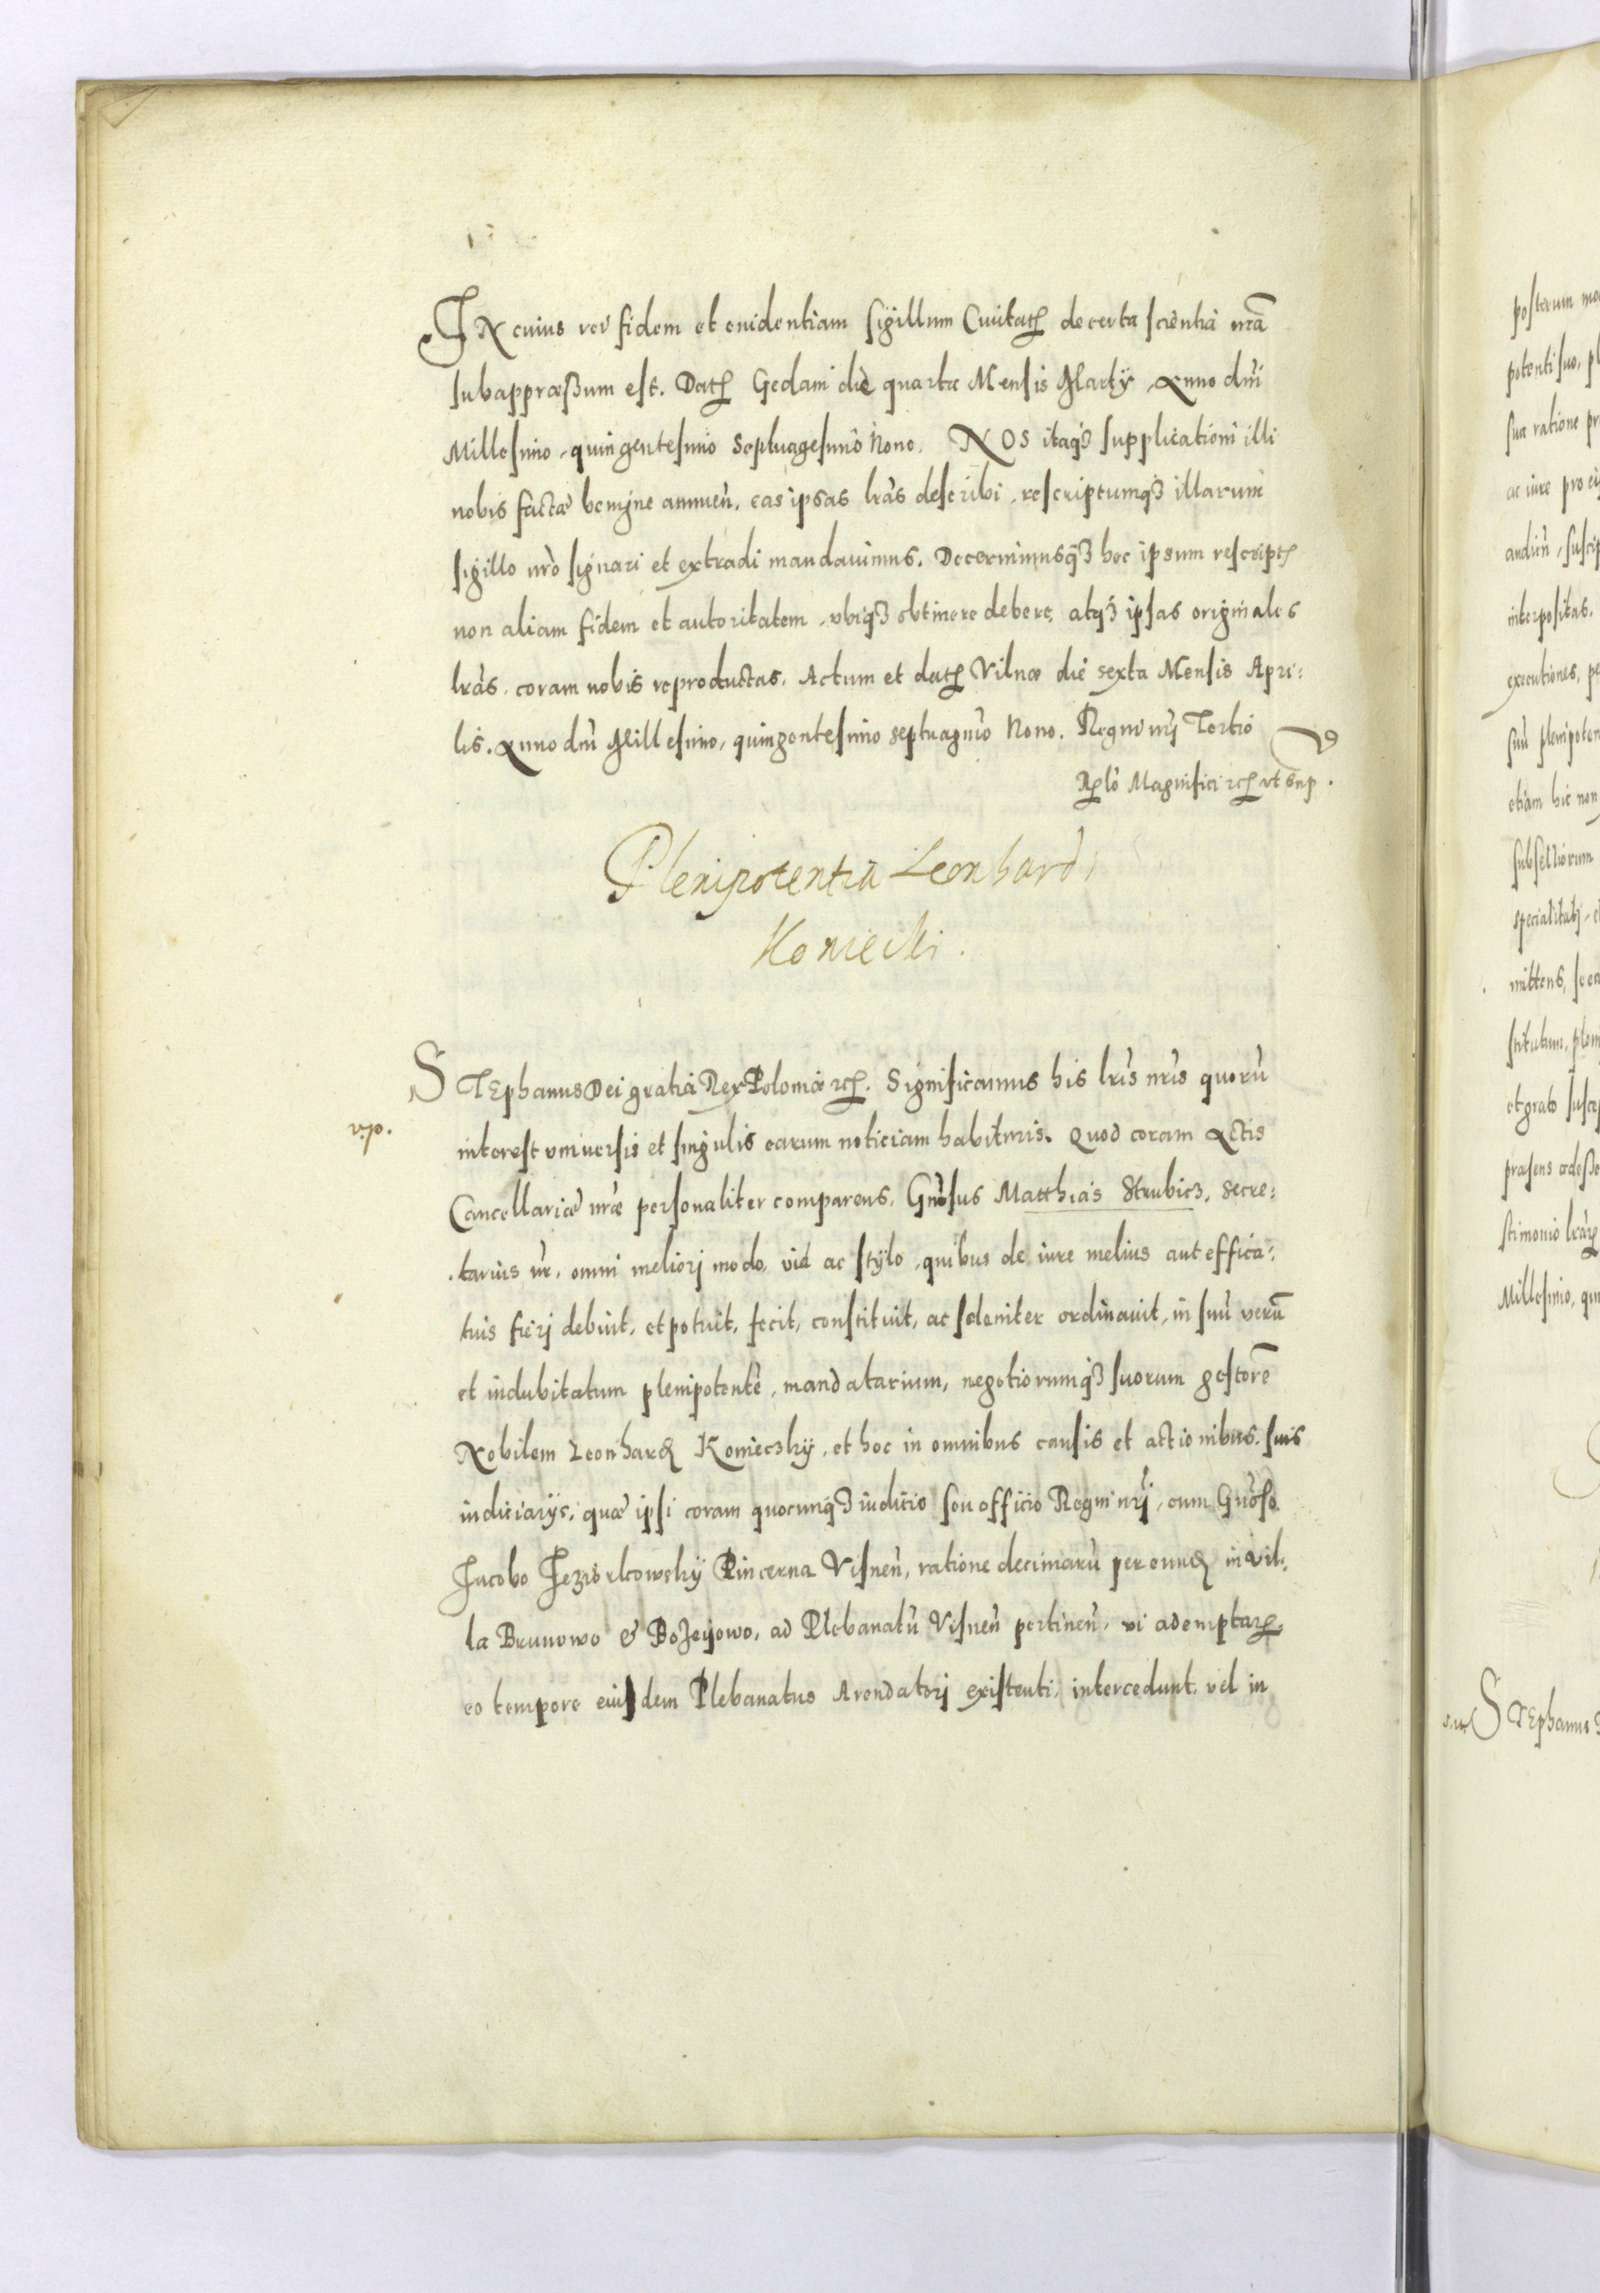 IN cuius rei fidem et euidentiam sigillum Ciuitat. de certa scientia nrã
subappræssum est. Dat. Gedani die quarta Mensis Martij Anno dni
Millesimo quingentesimo Septuagesimo Nono. NOS itaq3 supplicationi illi
nobis factæ benigne annuen. eas ipsas lras describi, rescriptumq3 illarum
sigillo nro signari et extradi mandauimus. Decernimusq3 hoc ipsum rescript.
non aliam fidem et autoritatem, vbiq3 obtinere debere, atq3 ipsas originales
lras, coram nobis reproductas. Actum et dat. Vilnæ die sexta Mensis Apri:
lis. Anno dni Millesimo, quingentesimo septuagmo Nono. Regni nri Tertio
Rélo Magnifici etc. vt sup.
Plenipotentia Leonhardi
Koniecki.
STEphanus Dei gratia Rex Poloniæ etc. Significamus his lris nris quorũ
interest vniuersis et singulis earum noticiam habituris. Quod coram Actis
Cancellariæ nræ personaliter comparens, Gnosus Matthias Strubicz, Secre:
tarius nr, omni meliorj modo, via ac stylo, quibus de iure melius aut effica:
tius fierj debuit, et potuit, fecit, constituit, ac solemniter ordinauit, in suũ verũ
et indubitatum plenipotentẽ, mandatarium, negotiorumq3 suorum gestorẽ
Nobilem Leonhard. Konieczky, et hoc in omnibus causis et actionibus suis
iudiciarijs, quæ ipsi coram quocunq3 iudicio seu officio Regni nrj, cum Gnoso
Jacobo Jeziorkowsky Pincerna Visnen, ratione decimarũ per eund. in vil:
la Brunowo & Bozejowo, ad Plebanatũ Visnen pertinen, vi ademptar.
eo tempore eiusdem Plebanatus Arendatorj existenti, intercedunt, vel in
STEphanus